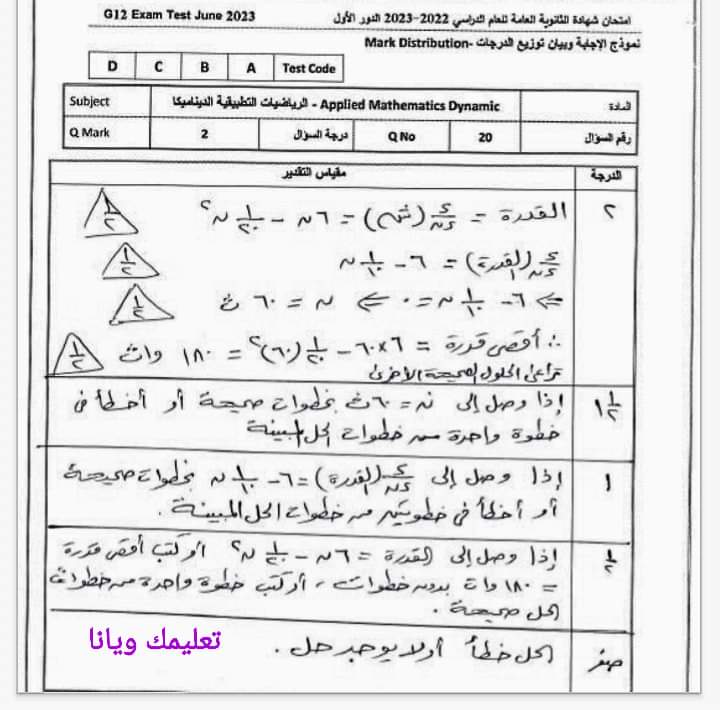 G12 Exam Test June 2023
امتحان شهادة الثانوية العامة للعام الدراسي 2022-2023 الدور الأول
نموذج الإجابة وبيان توزيع الدرجات -Mark Distribution
D C B A Test Code
Subject الرياضيات التطبيقية الديناميكا - Applied Mathematics Dynamic المادة
Q Mark 2 درجة السؤال Q No 20 رقم السؤال
الدرجة مقياس التقدير
٢ القدرة = ء/ءن (ش) = ٦ن - ١/٢٠ ن٢ ١/٢
ء/ءن (القدرة) = ٦ - ١/١٠ ن ١/٢
⇐ ٦ - ١/١٠ ن = ٠ ⇐ ن = ٦٠ ث ١/٢
∴ أقصى قدرة = ٦×٦٠ - ١/٢٠ (٦٠)٢ = ١٨٠ وات ١/٢
تراعى الحلول الصحيحة الأخرى
١ ١/٢ إذا وصل إلى ن = ٦٠ث بخطوات صحيحة أو أخطأ في
خطوة واحدة من خطوات الحل المبينة
١ إذا وصل إلى ء/ءن (القدرة) = ٦ - ١/١٠ ن بخطوات صحيحة
أو أخطأ في خطوتين من خطوات الحل المبينة.
١/٢ إذا وصل إلى القدرة = ٦ن - ١/٢٠ ن٢ أو كتب أقصى قدرة
= ١٨٠ وات بدون خطوات، أو كتب خطوة واحدة من خطوات
الحل صحيحة.
صفر الحل خطأ أو لا يوجد حل.
تعليمك ويانا